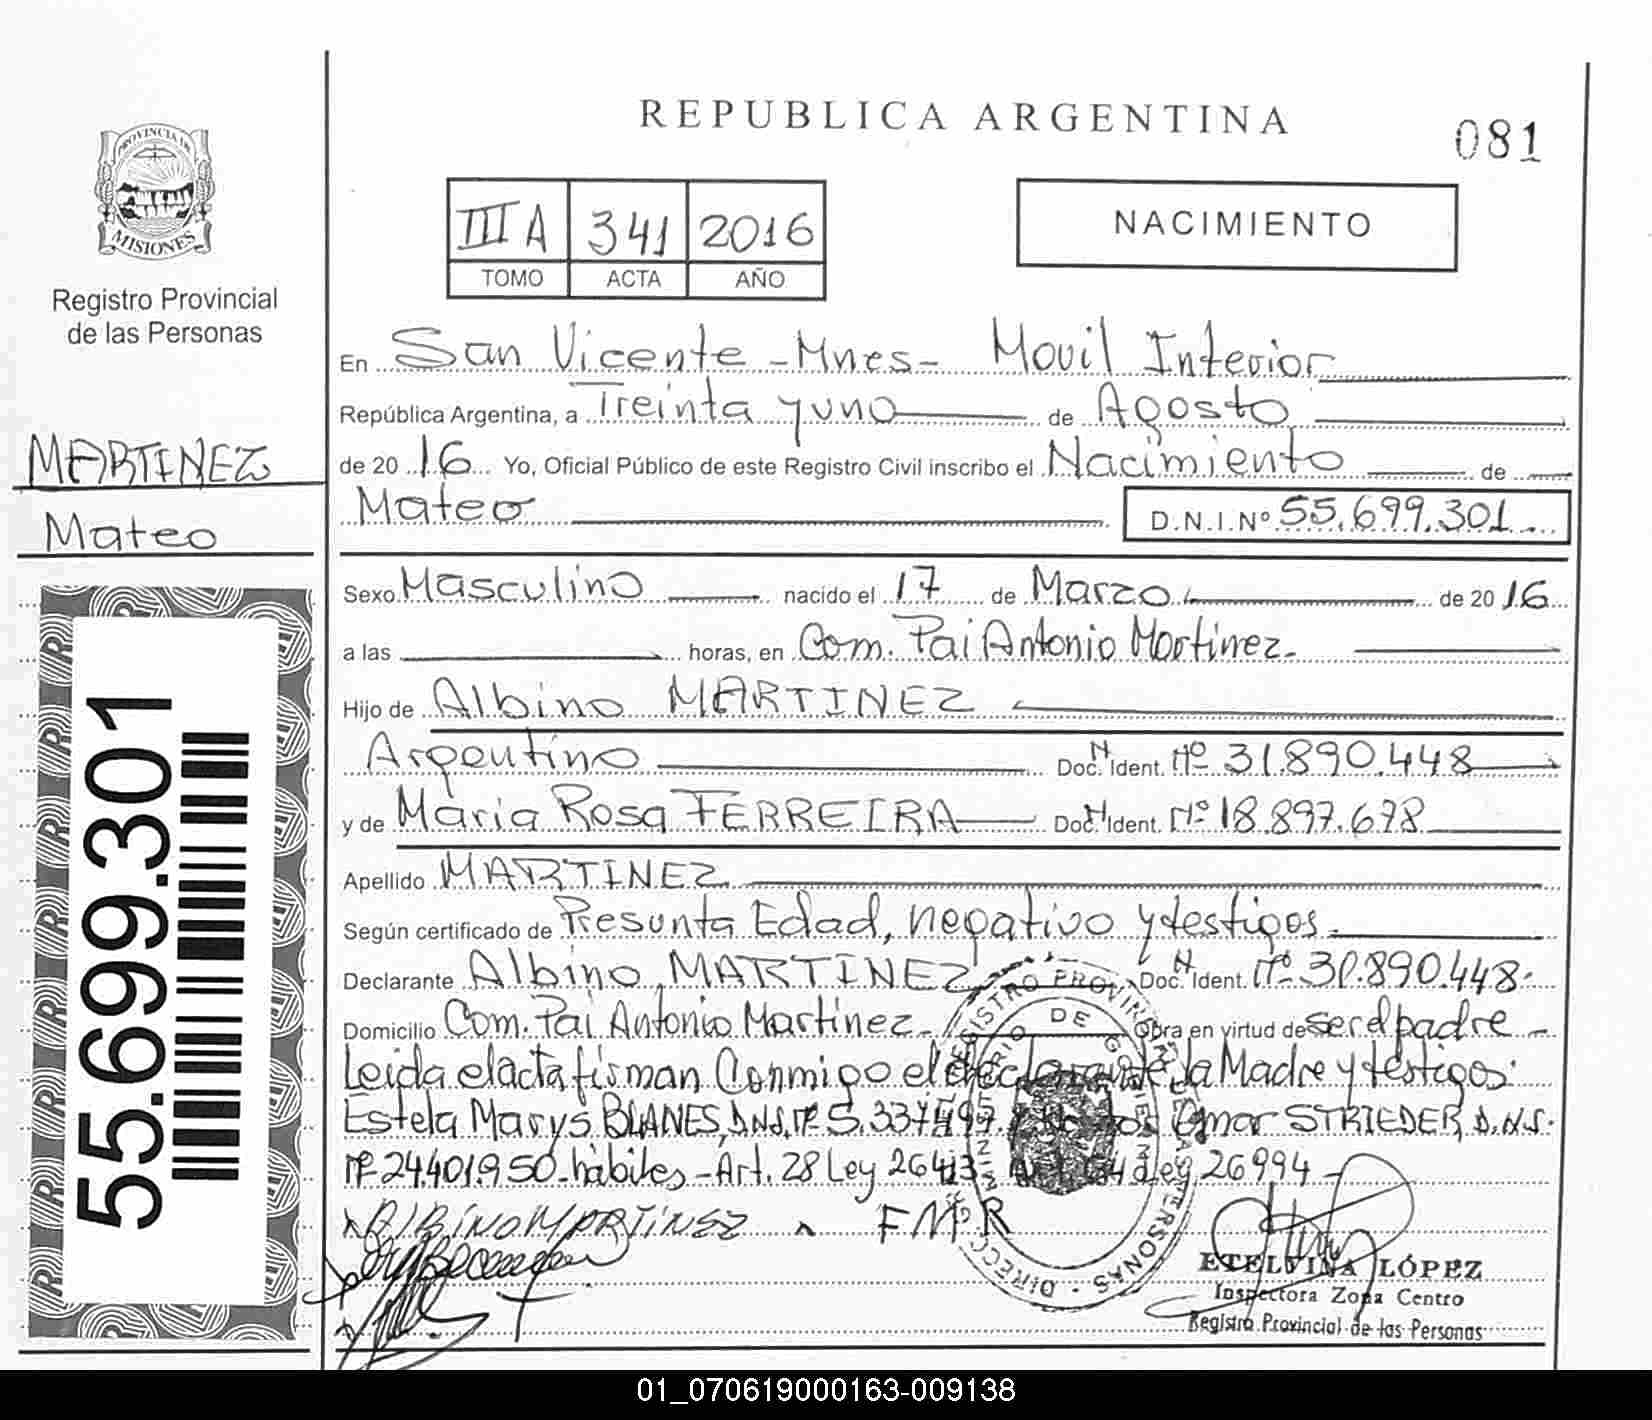 REPUBLICA ARGENTINA
081
PROVINCIA DE
MISIONES
Registro Provincial
de las Personas
III A 341 2016
TOMO ACTA AÑO
NACIMIENTO
MARTINEZ
Mateo
55.699.301
En San Vicente - Mnes - Movil Interior
República Argentina, a Treinta y uno de Agosto
de 2016 Yo, Oficial Público de este Registro Civil inscribo el Nacimiento de
Mateo D.N.I. Nº 55.699.301
Sexo Masculino nacido el 17 de Marzo de 2016
a las horas, en Com. Pai Antonio Martinez.
Hijo de Albino MARTINEZ
Argentino Doc. N. Ident. Nº 31.890.448
y de Maria Rosa FERREIRA Doc. N. Ident. Nº 18.897.678
Apellido MARTINEZ
Según certificado de Presunta Edad, negativo y testigos.
Declarante Albino MARTINEZ Doc. N. Ident. Nº 31.890.448.
Domicilio Com. Pai Antonio Martinez. Obra en virtud de ser el padre -
Leida el acta firman Conmigo el declarante, la Madre y testigos:
Estela Marys BLANES, D.N.I. Nº 5.337.497 Omar STRIEDER, D.N.I.
Nº 24.401.950 - hábiles - Art. 28 Ley 26413 Ley 26994 -
ALBiNO MARTiNEZ FMR
ETELVINA LÓPEZ
Inspectora Zona Centro
Registro Provincial de las Personas
01_070619000163-009138